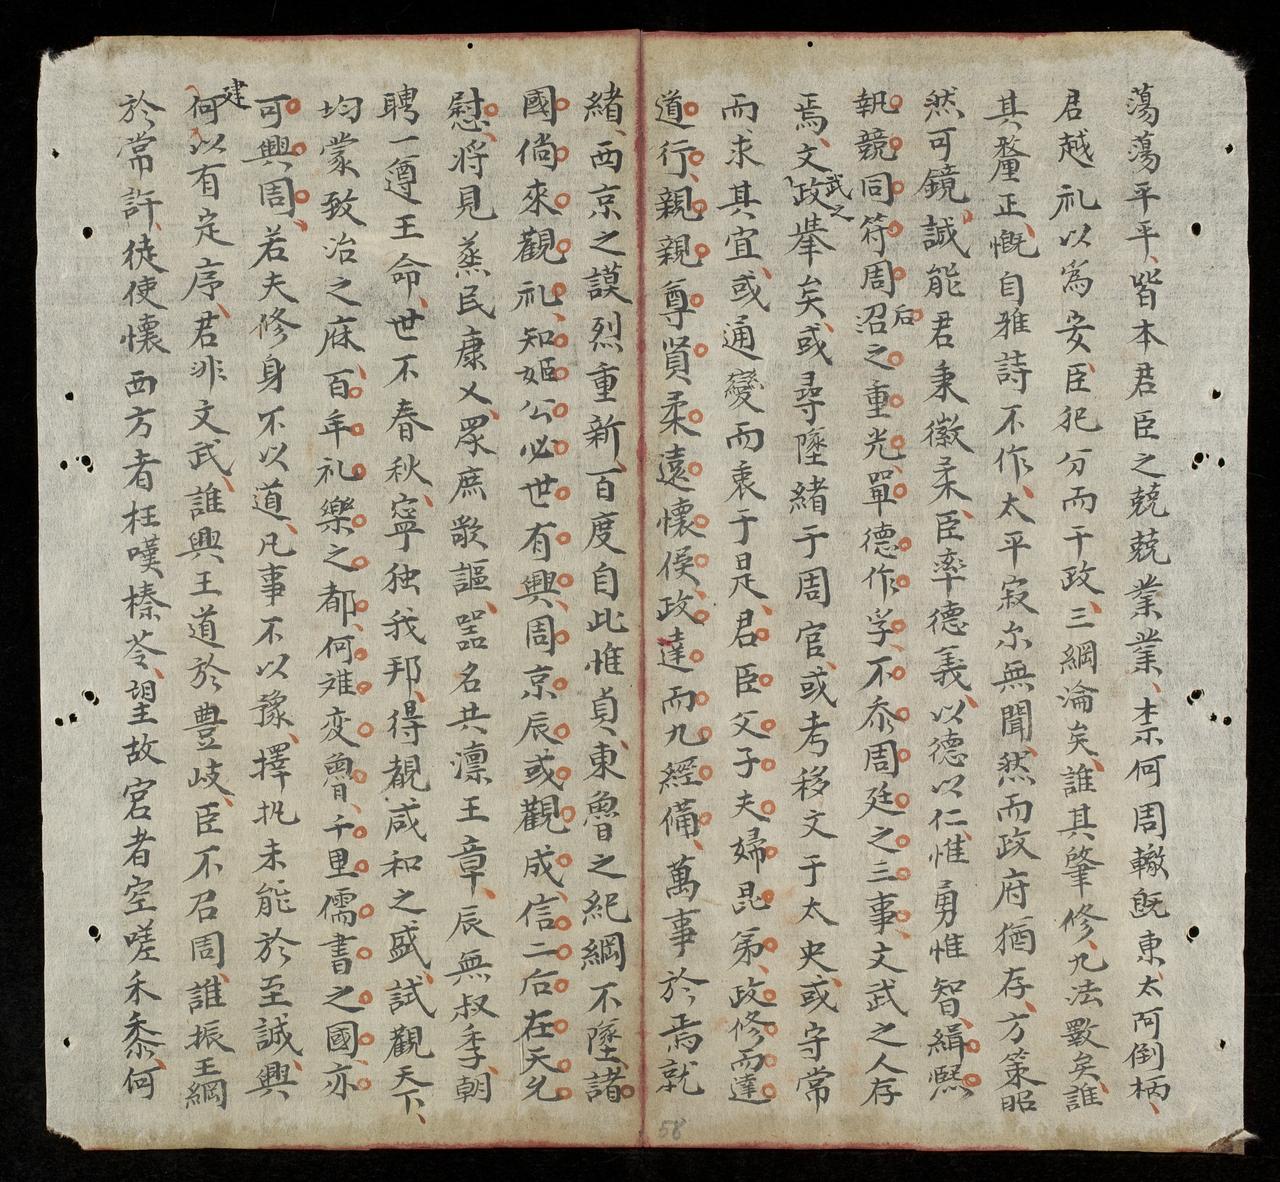 蕩蕩平平、皆本君臣之兢兢業業、柰何周轍既東、太阿倒柄、
君越礼以為安、臣犯分而干政、三綱淪矣、誰其肇修、九法斁矣、誰
其釐正、慨自雅詩不作、太平寂尔無聞、然而政府猶存、方策昭
然可鏡、誠能君秉徽柔、臣率德義、以德以仁、惟勇惟智、緝熙
執競同符周后沼之重光、單德作孚、不忝周廷之三事、文武之人存
焉、文武之政舉矣、或尋墜緒于周官、或考移文于太史、或守常
而求其宜、或通變而衷于是、君臣父子夫婦昆弟、政修而達
道行、親親尊賢柔遠懷侯、政達而九經備、萬事於焉就
緒、西京之謨烈重新、百度自此惟貞、東魯之紀綱不墜、諸
國倘來觀礼、知姬公必世有興、周京辰或觀成、信二后在天允
慰、將見蒸民康乂、眾庶歌謳、噐名共凜王章、辰無叔季、朝
聘一遵王命、世不春秋、寧独我邦、得覩咸和之盛、試觀天下、
均蒙致治之庥、百年礼樂之都、何难变魯、千里儒書之國、亦
可興周、若夫修身不以道、凡事不以豫、擇执未能於至誠、興
建何以有定序、君非文武、誰興王道於豊岐、臣不召周、誰振王綱
於常許、徒使懷西方者枉嘆榛苓、望故宮者空嗟禾黍、何
58